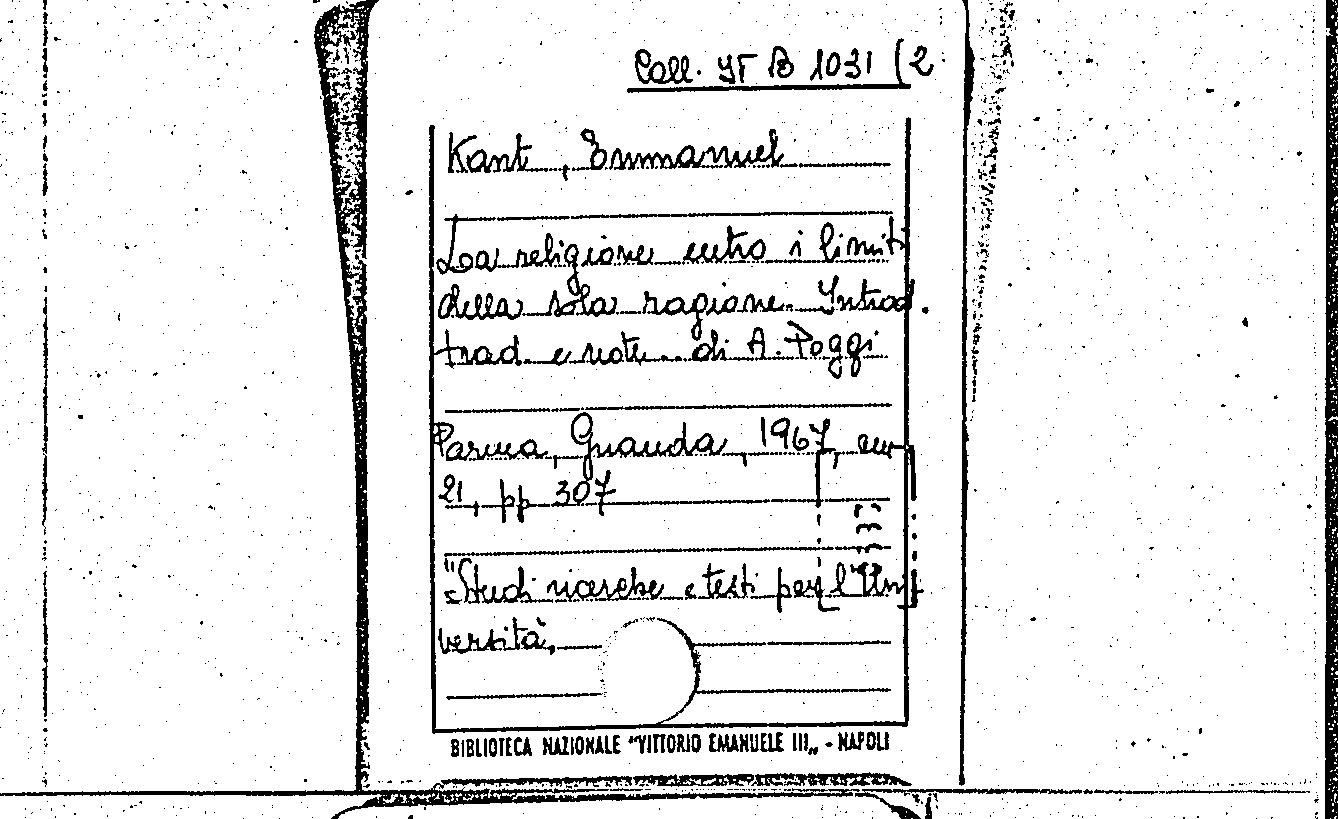 Coll. YF B 1031 (2
Kant, Emmanuel
La religione entro i limiti
della sola ragione. Introd.
trad. e note di A. Poggi
Parma, Guanda, 1967, cm
21, pp 307
"Studi ricerche e testi per l'Uni
versità,
BIBLIOTECA NAZIONALE "VITTORIO EMANUELE III„ - NAPOLI